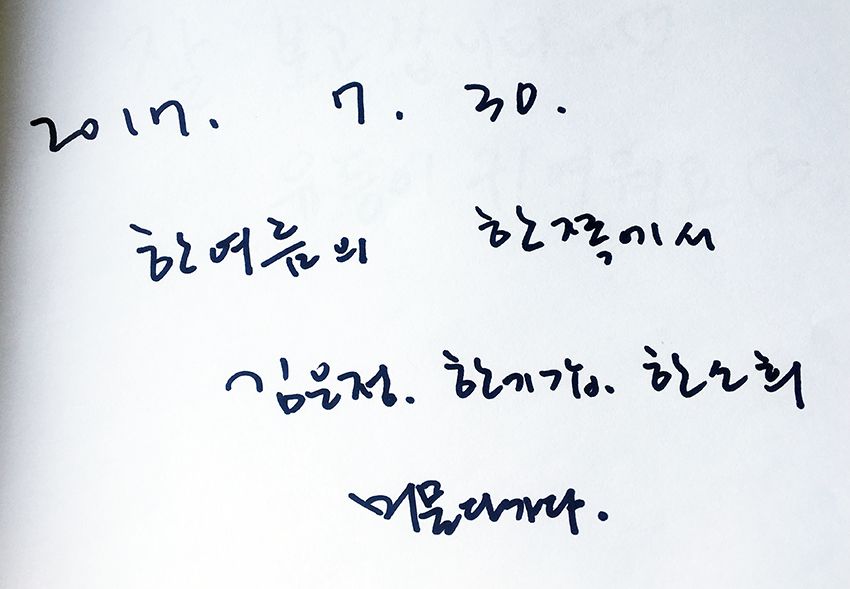 2017. 7. 30.
한여름의 한쪽에서
김은정. 한기강. 한소희
머물다가다.